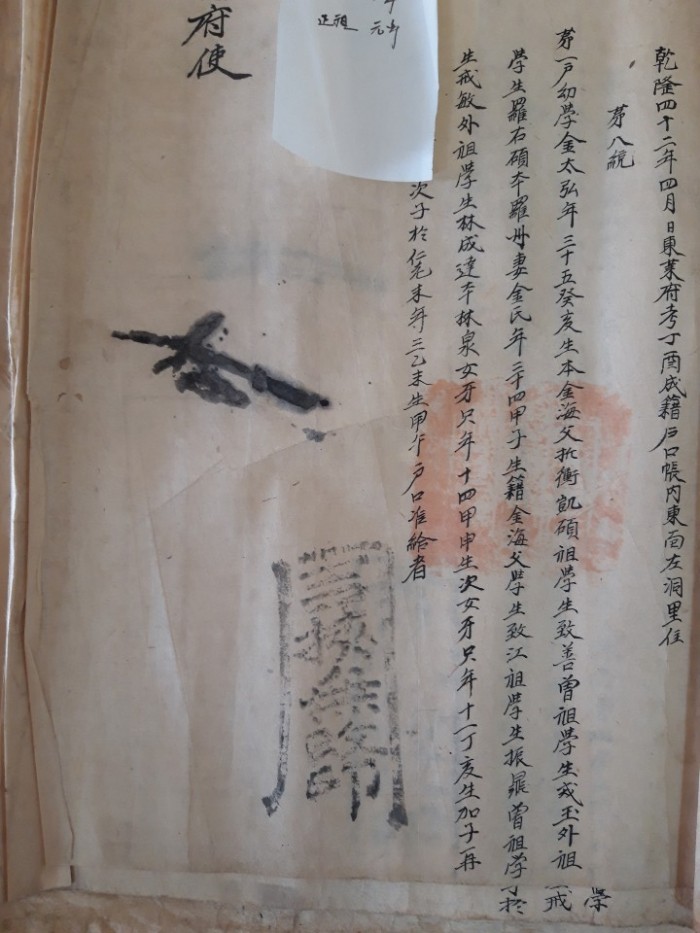 乾隆四十二年四月日東萊府考丁酉成籍戶口帳內東面左洞里住
第八統
第一戶幼學金太弘年三十五癸亥生本金海父折衝凱碩祖學生致善曾祖學生戎玉外祖
學生羅右碩本羅州妻金氏年三十四甲子生籍金海父學生致江祖學生振羅曾祖學
生戒敏外祖學生林成達本林泉女牙只年十四甲申生次女牙只年十一丁亥生加子一冉
次子於仁老未年三乙未生甲午戶口准給者
學
一戒
府使
元年
正祖